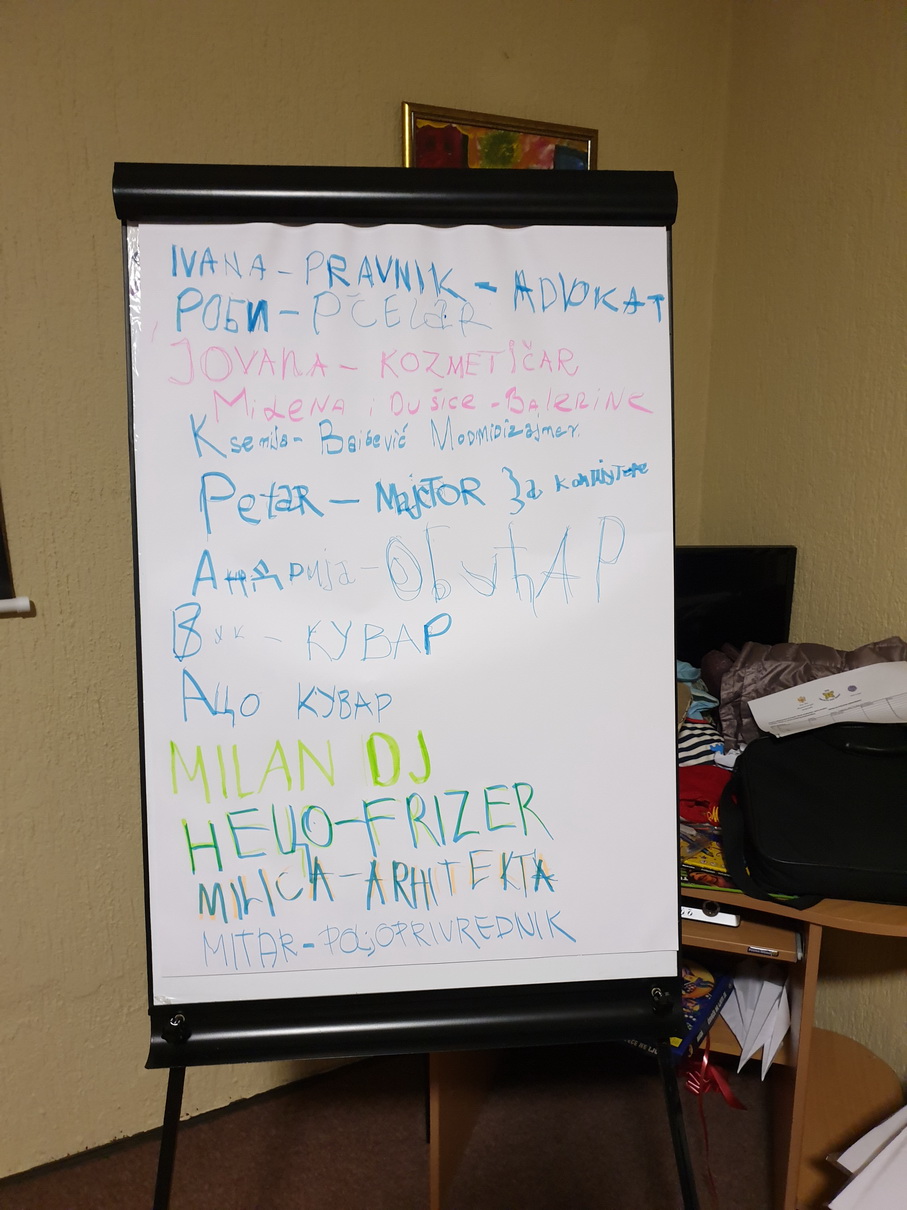 IVANA - PRAVNIK - ADVOKAT
РОБИ - PČELAR
JOVANA - KOZMETIČAR
MiLENA i DUŠiCe - BALERINE
Ksenija - Baićević
PetaR - MajcTOR за компјутере
Андрија - ОбућАР
Вук - КУВАР
Ацо КУВАР
MILAN DJ
НЕЦО - FRIZER
MILICA - ARHITEKTA
MITAR - POLJOPRIVREDNIK